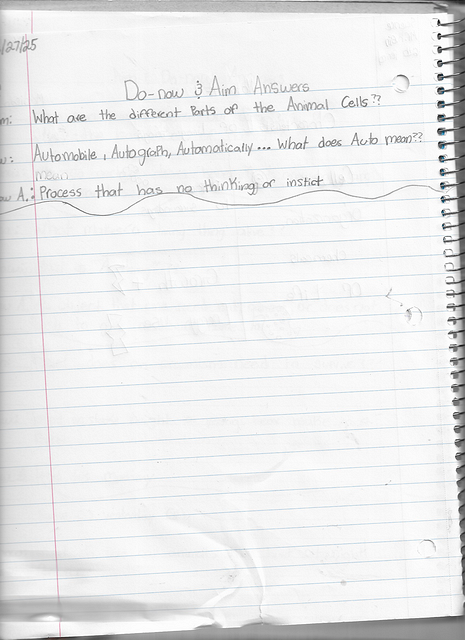 /27/25
Do-now & Aim Answers
m: What are the different Parts of the Animal Cells??
w: Automobile, Autograph, Automatically... What does Auto mean??
mean
ow A.: Process that has no thinking or instict